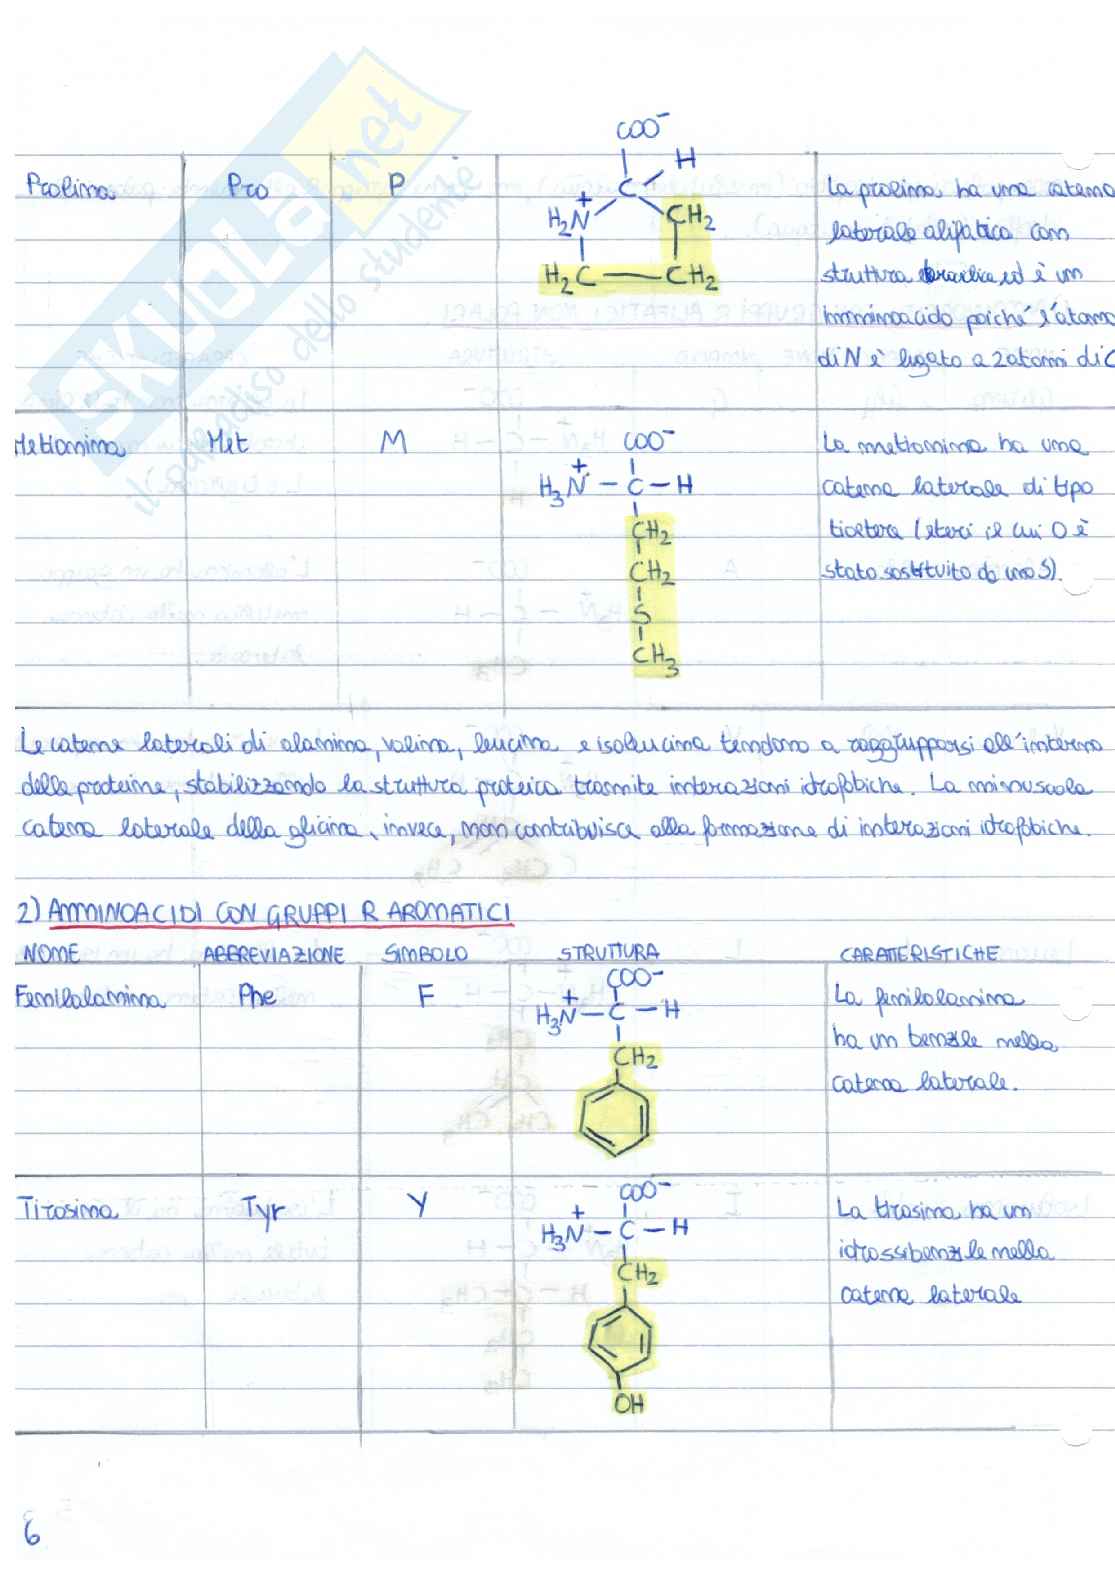 SKUOLA.net
il paradiso dello studente
Prolina Pro P
COO⁻
C H
H₂N⁺ CH₂
H₂C — CH₂
La prolina ha una catena
laterale alifatica con
struttura ed è un
imminoacido poiché l'atomo
di N è legato a 2 atomi di C
Metionina Met M
COO⁻
H₃N⁺ — C — H
CH₂
CH₂
S
CH₃
La metionina ha una
catena laterale di tipo
tioetere (eteri il cui O è
stato sostituito da uno S).
Le catene laterali di alanina, valina, leucina e isoleucina tendono a raggrupparsi all'interno
delle proteine, stabilizzando la struttura proteica tramite interazioni idrofobiche. La minuscola
catena laterale della glicina, invece, non contribuisce alla formazione di interazioni idrofobiche.
2) AMMINOACIDI CON GRUPPI R AROMATICI
NOME ABBREVIAZIONE SIMBOLO STRUTTURA CARATTERISTICHE
Fenilalanina Phe F
COO⁻
H₃N⁺ — C — H
CH₂
La fenilalanina
ha un benzile nella
catena laterale.
Tirosina Tyr Y
COO⁻
H₃N⁺ — C — H
CH₂
OH
La tirosina ha un
idrossibenzile nella
catena laterale
6